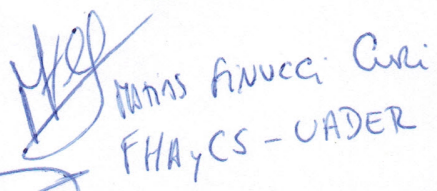 Matías Finucci Curi
FHAyCS - UADER